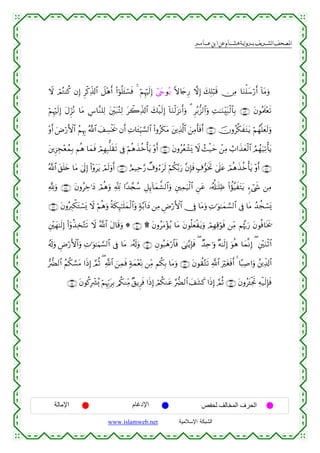 المصحف الشريف برواية هشام عن ابن عامر
وَمَآ أَرْسَلْنَا مِن قَبْلِكَ إِلَّا رِجَالًا يُوحَىٰ إِلَيْهِمْ ۚ فَسْـَٔلُوٓا۟ أَهْلَ ٱلذِّكْرِ إِن كُنتُمْ لَا
تَعْلَمُونَ بِٱلْبَيِّنَٰتِ وَٱلزُّبُرِ ۗ وَأَنزَلْنَآ إِلَيْكَ ٱلذِّكْرَ لِتُبَيِّنَ لِلنَّاسِ مَا نُزِّلَ إِلَيْهِمْ
وَلَعَلَّهُمْ يَتَفَكَّرُونَ أَفَأَمِنَ ٱلَّذِينَ مَكَرُوا۟ ٱلسَّيِّـَٔاتِ أَن يَخْسِفَ ٱللَّهُ بِهِمُ ٱلْأَرْضَ أَوْ
يَأْتِيَهُمُ ٱلْعَذَابُ مِنْ حَيْثُ لَا يَشْعُرُونَ أَوْ يَأْخُذَهُمْ فِى تَقَلُّبِهِمْ فَمَا هُم بِمُعْجِزِينَ
أَوْ يَأْخُذَهُمْ عَلَىٰ تَخَوُّفٍ فَإِنَّ رَبَّكُمْ لَرَءُوفٌ رَّحِيمٌ أَوَلَمْ يَرَوْا۟ إِلَىٰ مَا خَلَقَ ٱللَّهُ
مِن شَىْءٍ يَتَفَيَّؤُا۟ ظِلَٰلُهُۥ عَنِ ٱلْيَمِينِ وَٱلشَّمَآئِلِ سُجَّدًا لِّلَّهِ وَهُمْ دَٰخِرُونَ وَلِلَّهِ
يَسْجُدُ مَا فِى ٱلسَّمَٰوَٰتِ وَمَا فِى ٱلْأَرْضِ مِن دَآبَّةٍ وَٱلْمَلَٰٓئِكَةُ وَهُمْ لَا يَسْتَكْبِرُونَ
يَخَافُونَ رَبَّهُم مِّن فَوْقِهِمْ وَيَفْعَلُونَ مَا يُؤْمَرُونَ ۩ ۞ وَقَالَ ٱللَّهُ لَا تَتَّخِذُوٓا۟ إِلَٰهَيْنِ
ٱثْنَيْنِ ۖ إِنَّمَا هُوَ إِلَٰهٌ وَٰحِدٌ ۖ فَإِيَّٰىَ فَٱرْهَبُونِ وَلَهُۥ مَا فِى ٱلسَّمَٰوَٰتِ وَٱلْأَرْضِ وَلَهُ
ٱلدِّينُ وَاصِبًا ۚ أَفَغَيْرَ ٱللَّهِ تَتَّقُونَ وَمَا بِكُم مِّن نِّعْمَةٍ فَمِنَ ٱللَّهِ ۖ ثُمَّ إِذَا مَسَّكُمُ ٱلضُّرُّ
فَإِلَيْهِ تَجْـَٔرُونَ ثُمَّ إِذَا كَشَفَ ٱلضُّرَّ عَنكُمْ إِذَا فَرِيقٌ مِّنكُم بِرَبِّهِمْ يُشْرِكُونَ
الحرف المخالف لحفص الإدغام الإمالة
www.islamweb.net الشبكة الإسلامية